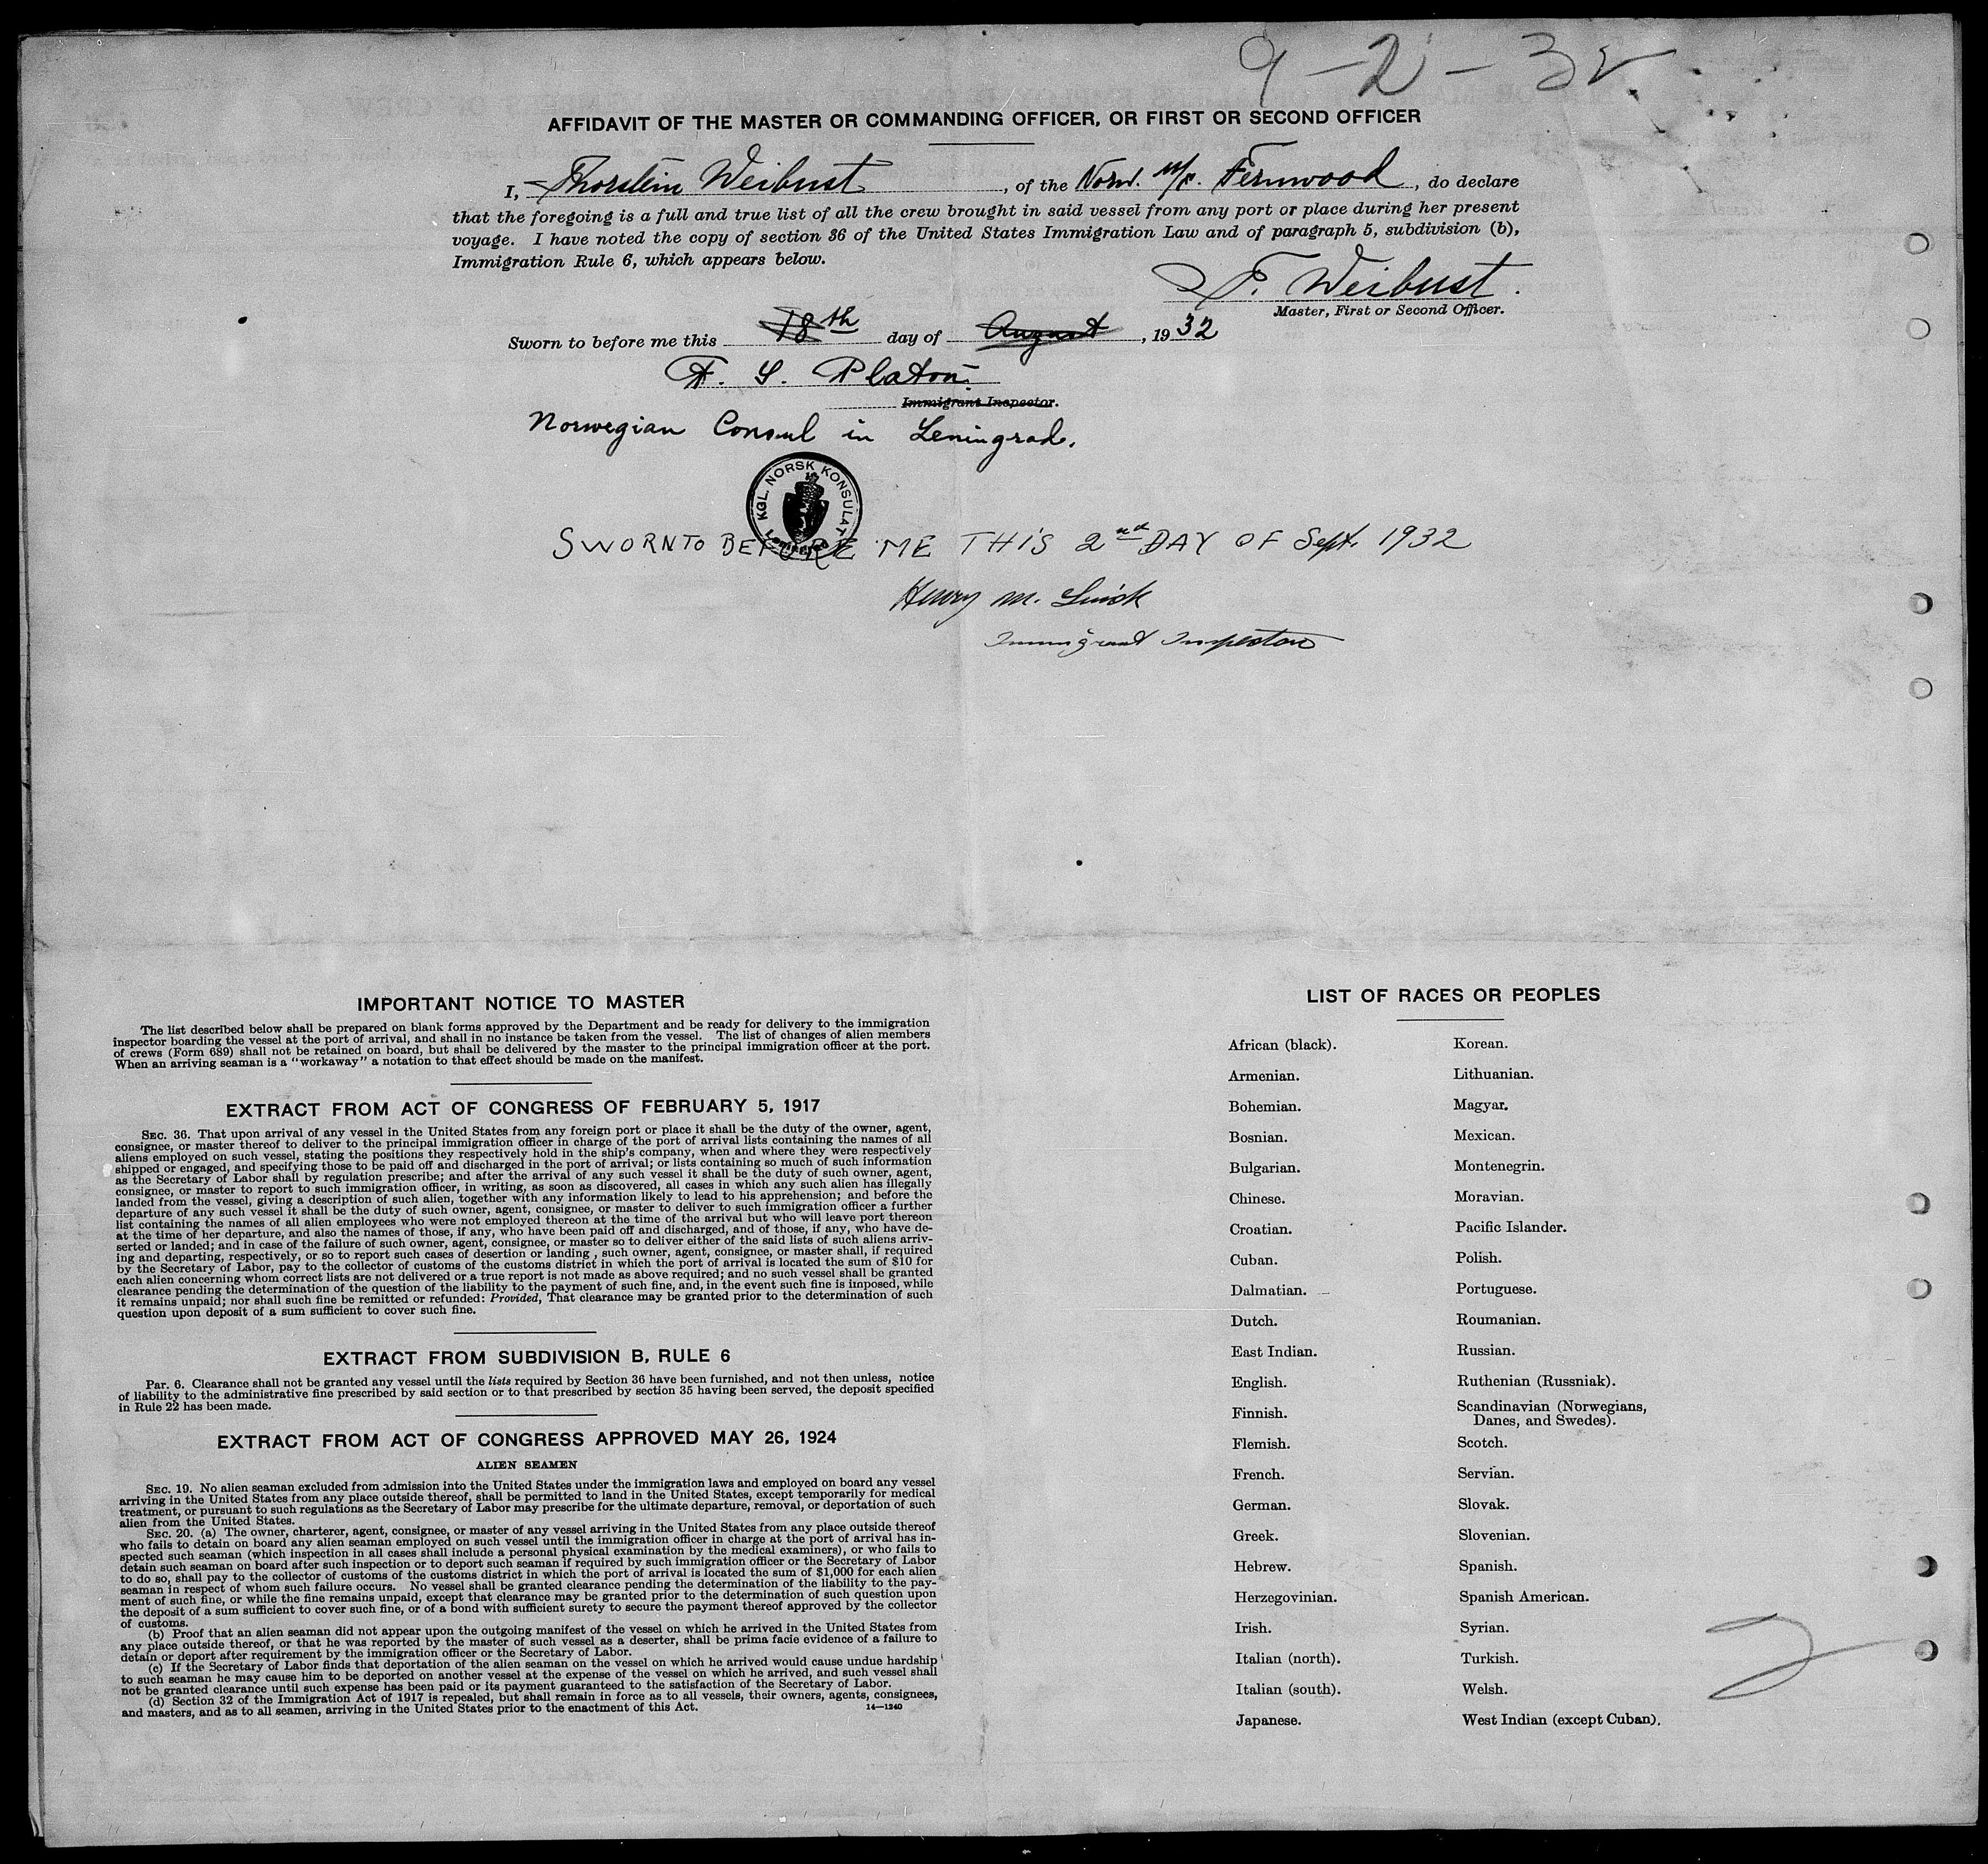 9-2-32
AFFIDAVIT OF THE MASTER OR COMMANDING OFFICER, OR FIRST OR SECOND OFFICER
I, Thorstein Weibust, of the Norw. M/S. Fernwood, do declare
that the foregoing is a full and true list of all the crew brought in said vessel from any port or place during her present
voyage. I have noted the copy of section 36 of the United States Immigration Law and of paragraph 5, subdivision (b),
Immigration Rule 6, which appears below.
T. Weibust.
Master, First or Second Officer.
Sworn to before me this 18th day of August, 1932
F. S. Platou.
Immigrant Inspector.
Norwegian Consul in Leningrad.
KGL. NORSK KONSULAT
Leningrad
SWORN TO BEFORE ME THIS 2nd DAY OF Sept. 1932
Henry M.
Immigrant Inspector
IMPORTANT NOTICE TO MASTER
The list described below shall be prepared on blank forms approved by the Department and be ready for delivery to the immigration
inspector boarding the vessel at the port of arrival, and shall in no instance be taken from the vessel. The list of changes of alien members
of crews (Form 689) shall not be retained on board, but shall be delivered by the master to the principal immigration officer at the port.
When an arriving seaman is a "workaway" a notation to that effect should be made on the manifest.
EXTRACT FROM ACT OF CONGRESS OF FEBRUARY 5, 1917
SEC. 36. That upon arrival of any vessel in the United States from any foreign port or place it shall be the duty of the owner, agent,
consignee, or master thereof to deliver to the principal immigration officer in charge of the port of arrival lists containing the names of all
aliens employed on such vessel, stating the positions they respectively hold in the ship's company, when and where they were respectively
shipped or engaged, and specifying those to be paid off and discharged in the port of arrival; or lists containing so much of such information
as the Secretary of Labor shall by regulation prescribe; and after the arrival of any such vessel it shall be the duty of such owner, agent,
consignee, or master to report to such immigration officer, in writing, as soon as discovered, all cases in which any such alien has illegally
landed from the vessel, giving a description of such alien, together with any information likely to lead to his apprehension; and before the
departure of any such vessel it shall be the duty of such owner, agent, consignee, or master to deliver to such immigration officer a further
list containing the names of all alien employees who were not employed thereon at the time of the arrival but who will leave port thereon
at the time of her departure, and also the names of those, if any, who have been paid off and discharged, and of those, if any, who have de-
serted or landed; and in case of the failure of such owner, agent, consignee, or master so to deliver either of the said lists of such aliens arriv-
ing and departing, respectively, or so to report such cases of desertion or landing , such owner, agent, consignee, or master shall, if required
by the Secretary of Labor, pay to the collector of customs of the customs district in which the port of arrival is located the sum of $10 for
each alien concerning whom correct lists are not delivered or a true report is not made as above required; and no such vessel shall be granted
clearance pending the determination of the question of the liability to the payment of such fine, and, in the event such fine is imposed, while
it remains unpaid; nor shall such fine be remitted or refunded: Provided, That clearance may be granted prior to the determination of such
question upon deposit of a sum sufficient to cover such fine.
EXTRACT FROM SUBDIVISION B, RULE 6
Par. 6. Clearance shall not be granted any vessel until the lists required by Section 36 have been furnished, and not then unless, notice
of liability to the administrative fine prescribed by said section or to that prescribed by section 35 having been served, the deposit specified
in Rule 22 has been made.
EXTRACT FROM ACT OF CONGRESS APPROVED MAY 26, 1924
ALIEN SEAMEN
SEC. 19. No alien seaman excluded from admission into the United States under the immigration laws and employed on board any vessel
arriving in the United States from any place outside thereof, shall be permitted to land in the United States, except temporarily for medical
treatment, or pursuant to such regulations as the Secretary of Labor may prescribe for the ultimate departure, removal, or deportation of such
alien from the United States.
SEC. 20. (a) The owner, charterer, agent, consignee, or master of any vessel arriving in the United States from any place outside thereof
who fails to detain on board any alien seaman employed on such vessel until the immigration officer in charge at the port of arrival has in-
spected such seaman (which inspection in all cases shall include a personal physical examination by the medical examiners), or who fails to
detain such seaman on board after such inspection or to deport such seaman if required by such immigration officer or the Secretary of Labor
to do so, shall pay to the collector of customs of the customs district in which the port of arrival is located the sum of $1,000 for each alien
seaman in respect of whom such failure occurs. No vessel shall be granted clearance pending the determination of the liability to the pay-
ment of such fine, or while the fine remains unpaid, except that clearance may be granted prior to the determination of such question upon
the deposit of a sum sufficient to cover such fine, or of a bond with sufficient surety to secure the payment thereof approved by the collector
of customs.
(b) Proof that an alien seaman did not appear upon the outgoing manifest of the vessel on which he arrived in the United States from
any place outside thereof, or that he was reported by the master of such vessel as a deserter, shall be prima facie evidence of a failure to
detain or deport after requirement by the immigration officer or the Secretary of Labor.
(c) If the Secretary of Labor finds that deportation of the alien seaman on the vessel on which he arrived would cause undue hardship
to such seaman he may cause him to be deported on another vessel at the expense of the vessel on which he arrived, and such vessel shall
not be granted clearance until such expense has been paid or its payment guaranteed to the satisfaction of the Secretary of Labor.
(d) Section 32 of the Immigration Act of 1917 is repealed, but shall remain in force as to all vessels, their owners, agents, consignees,
and masters, and as to all seamen, arriving in the United States prior to the enactment of this Act.
14—1240
LIST OF RACES OR PEOPLES
African (black).
Armenian.
Bohemian.
Bosnian.
Bulgarian.
Chinese.
Croatian.
Cuban.
Dalmatian.
Dutch.
East Indian.
English.
Finnish.
Flemish.
French.
German.
Greek.
Hebrew.
Herzegovinian.
Irish.
Italian (north).
Italian (south).
Japanese.
Korean.
Lithuanian.
Magyar.
Mexican.
Montenegrin.
Moravian.
Pacific Islander.
Polish.
Portuguese.
Roumanian.
Russian.
Ruthenian (Russniak).
Scandinavian (Norwegians,
Danes, and Swedes).
Scotch.
Servian.
Slovak.
Slovenian.
Spanish.
Spanish American.
Syrian.
Turkish.
Welsh.
West Indian (except Cuban).
2